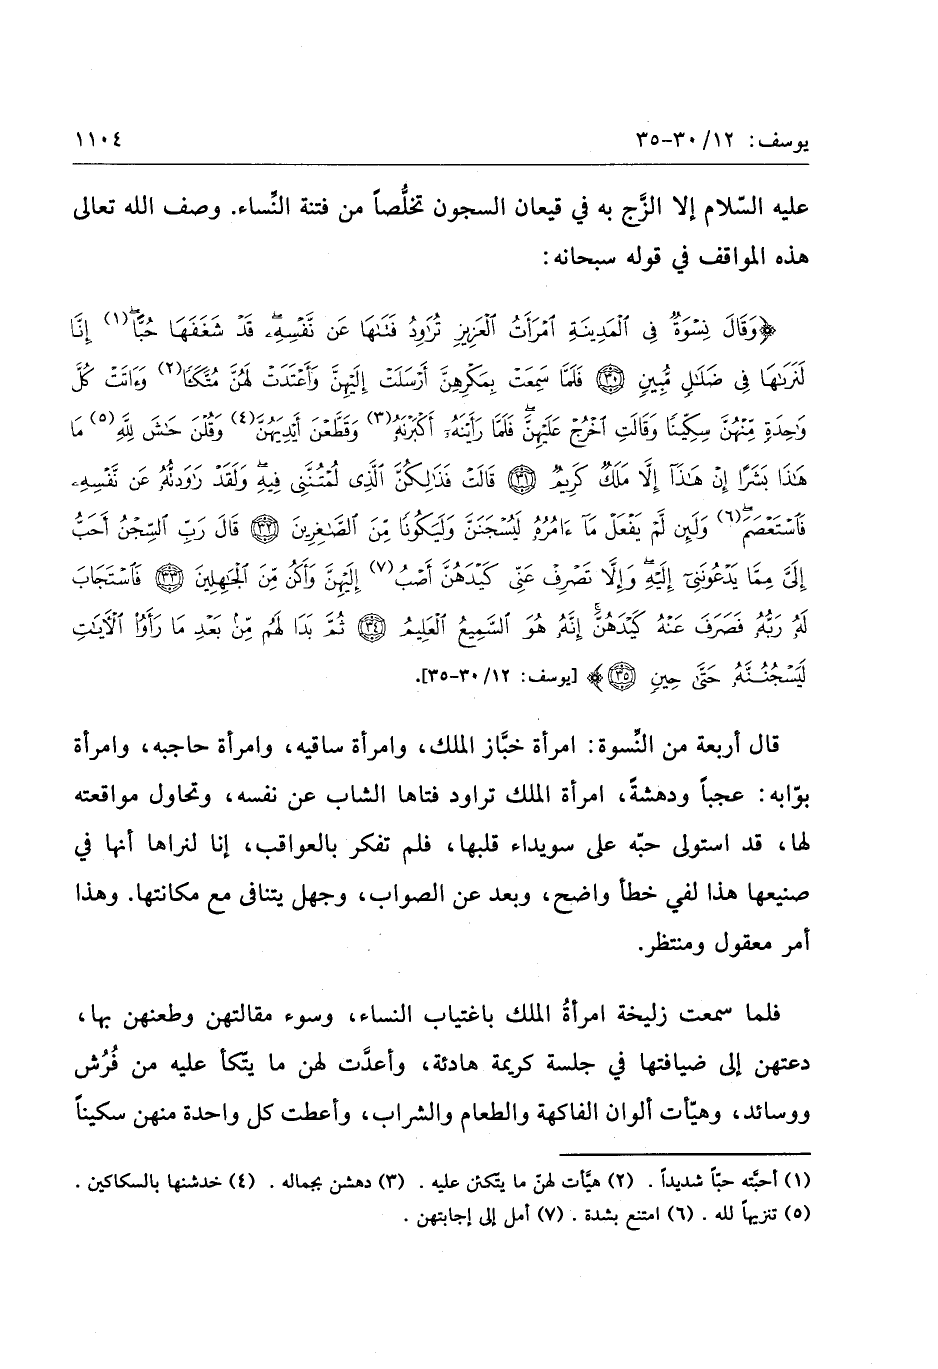 يوسف: ١٢/ ٣٠-٣٥ ١١٠٤
عليه السّلام إلا الزَّج به في قيعان السجون تخلُّصاً من فتنة النِّساء. وصف الله تعالى
هذه المواقف في قوله سبحانه:
﴿وَقَالَ نِسۡوَةٞ فِي ٱلۡمَدِينَةِ ٱمۡرَأَتُ ٱلۡعَزِيزِ تُرَٰوِدُ فَتَىٰهَا عَن نَّفۡسِهِۦۖ قَدۡ شَغَفَهَا حُبًّاۖ(١) إِنَّا
لَنَرَىٰهَا فِي ضَلَٰلٖ مُّبِينٖ ٣٠ فَلَمَّا سَمِعَتۡ بِمَكۡرِهِنَّ أَرۡسَلَتۡ إِلَيۡهِنَّ وَأَعۡتَدَتۡ لَهُنَّ مُتَّكَـٔٗا(٢) وَءَاتَتۡ كُلَّ
وَٰحِدَةٖ مِّنۡهُنَّ سِكِّينٗا وَقَالَتِ ٱخۡرُجۡ عَلَيۡهِنَّۖ فَلَمَّا رَأَيۡنَهُۥٓ أَكۡبَرۡنَهُۥ(٣) وَقَطَّعۡنَ أَيۡدِيَهُنَّ(٤) وَقُلۡنَ حَٰشَ لِلَّهِ(٥) مَا
هَٰذَا بَشَرًا إِنۡ هَٰذَآ إِلَّا مَلَكٞ كَرِيمٞ ٣١ قَالَتۡ فَذَٰلِكُنَّ ٱلَّذِي لُمۡتُنَّنِي فِيهِۖ وَلَقَدۡ رَٰوَدتُّهُۥ عَن نَّفۡسِهِۦ
فَٱسۡتَعۡصَمَۖ(٦) وَلَئِن لَّمۡ يَفۡعَلۡ مَآ ءَامُرُهُۥ لَيُسۡجَنَنَّ وَلَيَكُونٗا مِّنَ ٱلصَّٰغِرِينَ ٣٢ قَالَ رَبِّ ٱلسِّجۡنُ أَحَبُّ
إِلَيَّ مِمَّا يَدۡعُونَنِيٓ إِلَيۡهِۖ وَإِلَّا تَصۡرِفۡ عَنِّي كَيۡدَهُنَّ أَصۡبُ(٧) إِلَيۡهِنَّ وَأَكُن مِّنَ ٱلۡجَٰهِلِينَ ٣٣ فَٱسۡتَجَابَ
لَهُۥ رَبُّهُۥ فَصَرَفَ عَنۡهُ كَيۡدَهُنَّۚ إِنَّهُۥ هُوَ ٱلسَّمِيعُ ٱلۡعَلِيمُ ٣٤ ثُمَّ بَدَا لَهُم مِّنۢ بَعۡدِ مَا رَأَوُاْ ٱلۡأٓيَٰتِ
لَيَسۡجُنُنَّهُۥ حَتَّىٰ حِينٖ ٣٥﴾ [يوسف: ١٢/ ٣٠-٣٥].
قال أربعة من النِّسوة: امرأة خبَّاز الملك، وامرأة ساقيه، وامرأة حاجبه، وامرأة
بوّابه: عجباً ودهشةً، امرأة الملك تراود فتاها الشاب عن نفسه، وتحاول مواقعته
لها، قد استولى حبّه على سويداء قلبها، فلم تفكر بالعواقب، إنا لنراها أنها في
صنيعها هذا لفي خطأ واضح، وبعد عن الصواب، وجهل يتنافى مع مكانتها. وهذا
أمر معقول ومنتظر.
فلما سمعت زليخة امرأةُ الملك باغتياب النساء، وسوء مقالتهن وطعنهن بها،
دعتهن إلى ضيافتها في جلسة كريمة هادئة، وأعدَّت لهن ما يتّكأ عليه من فُرُش
ووسائد، وهيّأت ألوان الفاكهة والطعام والشراب، وأعطت كل واحدة منهن سكيناً
(١) أحبَّته حبّاً شديداً. (٢) هيَّأت لهنّ ما يتكئن عليه. (٣) دهشن بجماله. (٤) خدشنها بالسكاكين.
(٥) تنزيهاً لله. (٦) امتنع بشدة. (٧) أمل إلى إجابتهن.